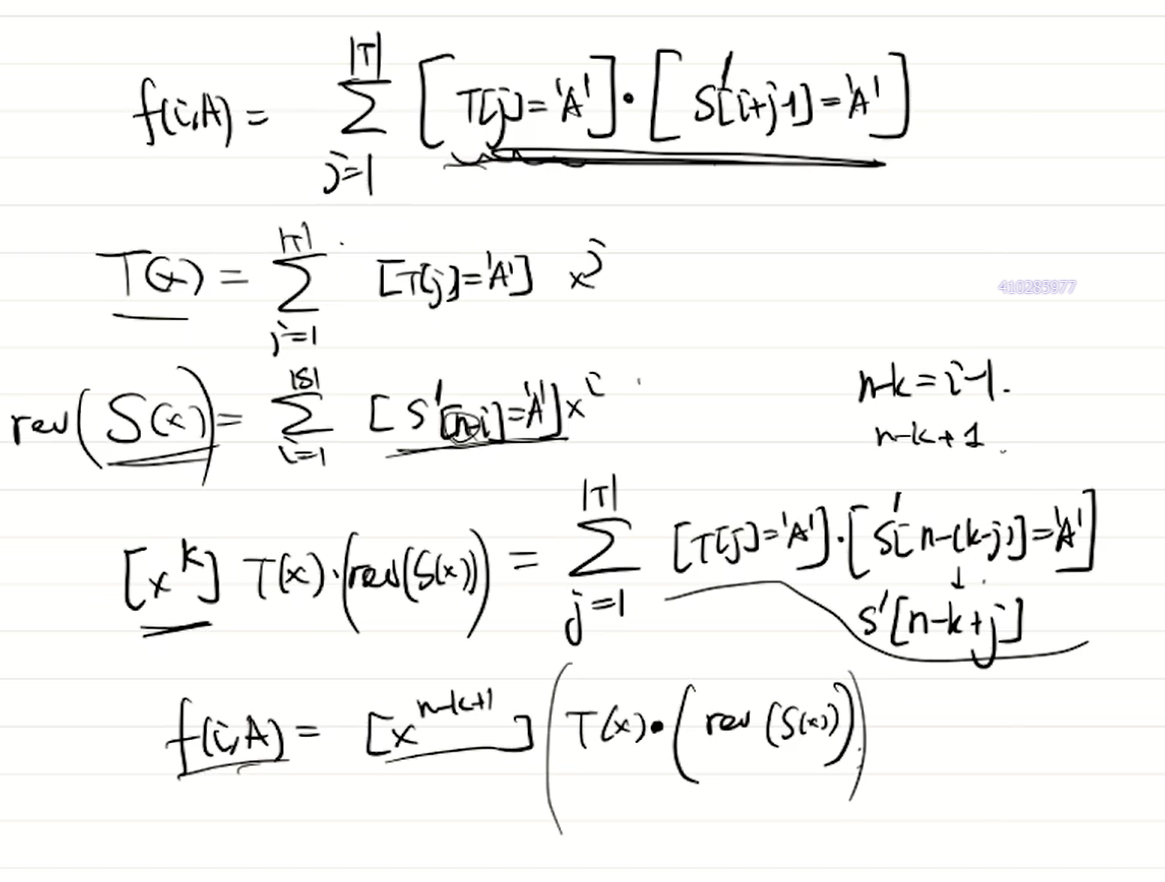 f(i,A) = ∑_{j=1}^{|T|} [T[j]='A']·[S'[i+j-1]='A']
T(x) = ∑_{j=1}^{|T|} [T[j]='A'] x^j
410285977
rev(S(x)) = ∑_{i=1}^{|S|} [S'[n-i]='A'] x^i
n-k = i-1.
n-k+1.
[x^k] T(x)·(rev(S(x))) = ∑_{j=1}^{|T|} [T[j]='A']·[S'[n-(k-j)]='A']
↓
S'[n-k+j]
f(i,A) = [x^{n-k+1}] (T(x)·(rev(S(x))))